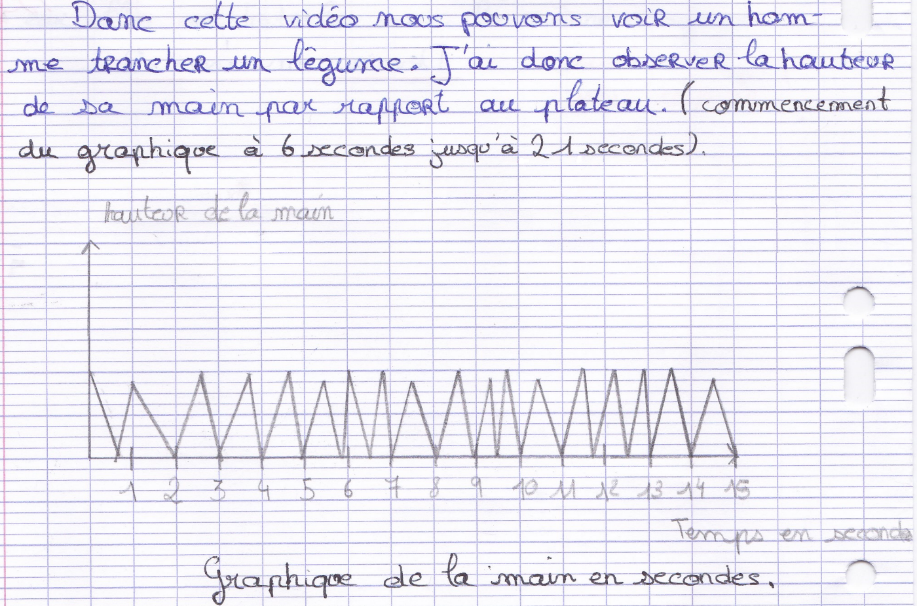 Danc cette vidéo nous pouvons voir un hom-
me trancher un légume. J'ai donc observer la hauteur
de sa main par rapport au plateau. (commencement
du graphique à 6 secondes jusqu'à 21 secondes).
hauteur de la main
1 2 3 4 5 6 7 8 9 10 11 12 13 14 15
Temps en seconde
Graphique de la main en secondes.